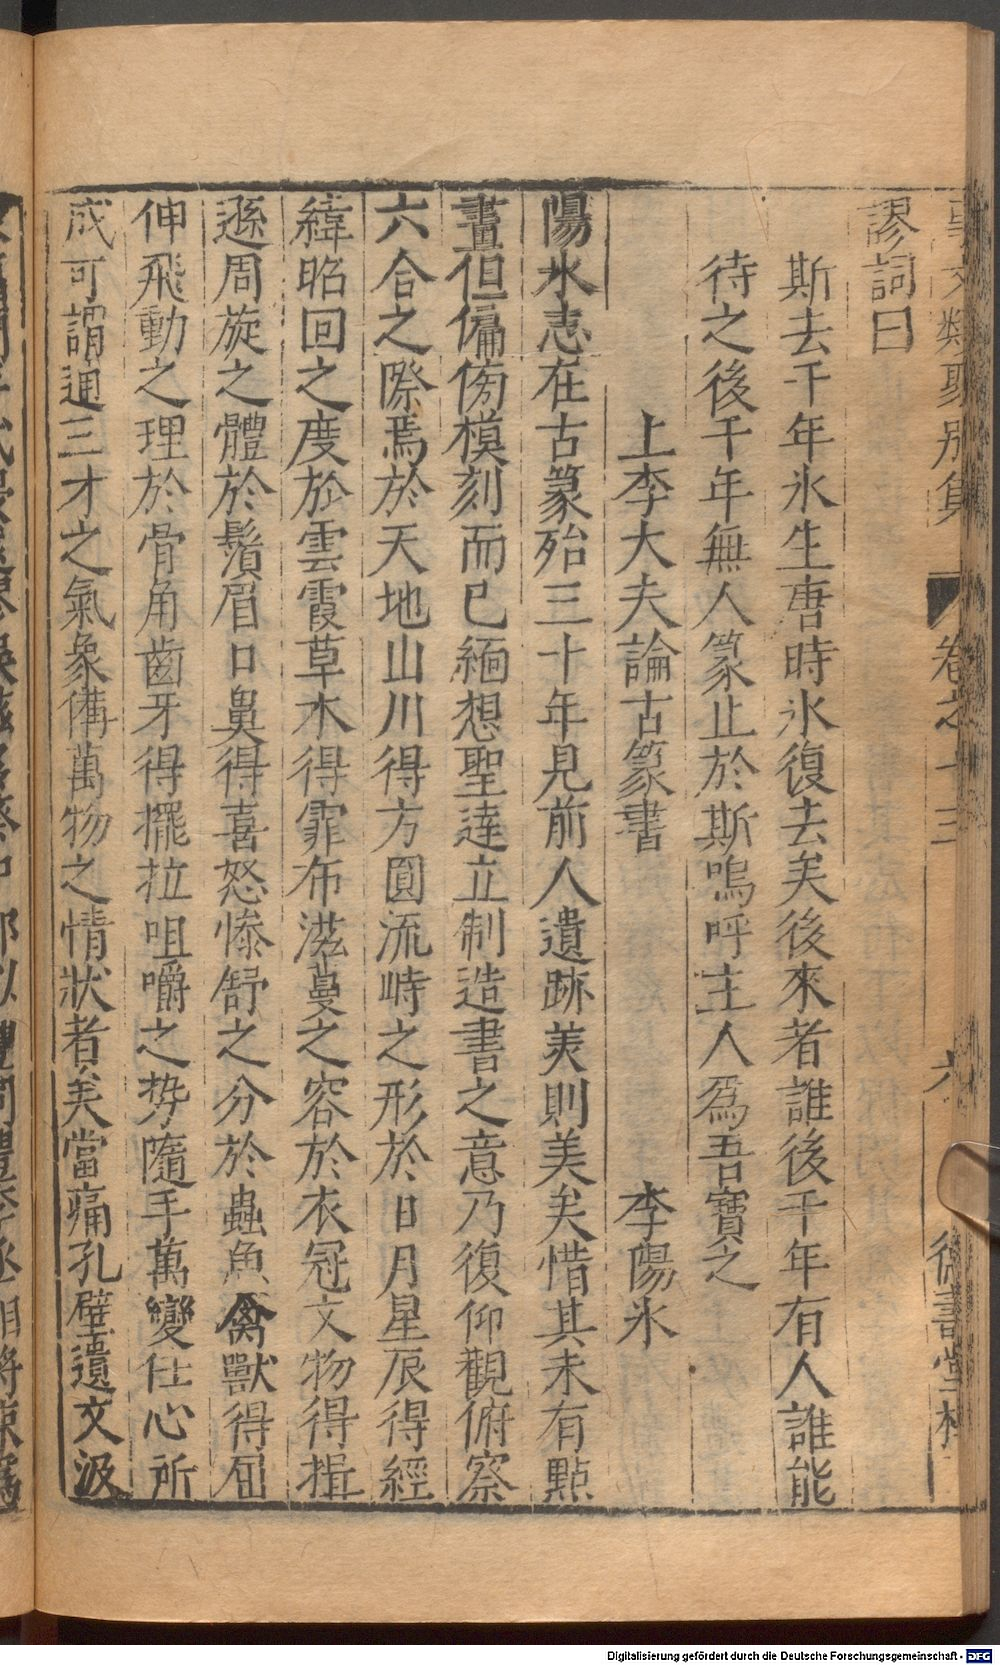 事文類聚別集
卷之十三
六
德書堂
謬詞曰
斯去千年氷生唐時氷復去矣後來者誰後千年有人誰能
待之後千年無人篆止於斯嗚呼主人爲吾寶之
上李大夫論古篆書
李陽氷
陽氷志在古篆殆三十年見前人遺跡美則美矣惜其未有點
畫但偏傍模刻而已緬想聖達立制造書之意乃復仰觀俯察
六合之際焉於天地山川得方圓流峙之形於日月星辰得經
緯昭回之度於雲霞草木得霏布滋蔓之容於衣冠文物得揖
遜周旋之體於鬚眉口鼻得喜怒慘舒之分於蟲魚禽獸得屈
伸飛動之理於骨角齒牙得擺拉咀嚼之势隨手萬變任心所
成可謂通三才之氣象備萬物之情狀者矣當痛孔壁遺文汲
Digitalisierung gefördert durch die Deutsche Forschungsgemeinschaft - DFG